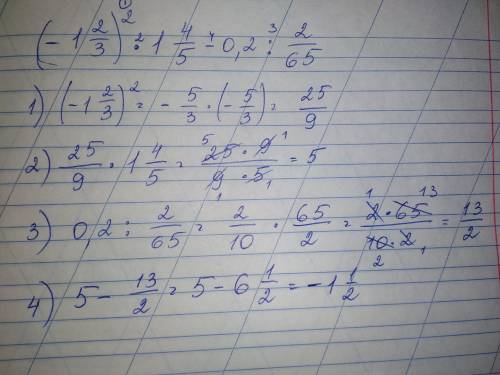 ① 2 4 3
(-1 2/3)² · 1 4/5 - 0,2 : 2/65
1) (-1 2/3)² = - 5/3 · (- 5/3) = 25/9
2) 25/9 · 1 4/5 = 25 · 9 / 9 · 5 = 5
3) 0,2 : 2/65 = 2/10 · 65/2 = 2 · 65 / 10 · 2 = 13/2
4) 5 - 13/2 = 5 - 6 1/2 = -1 1/2